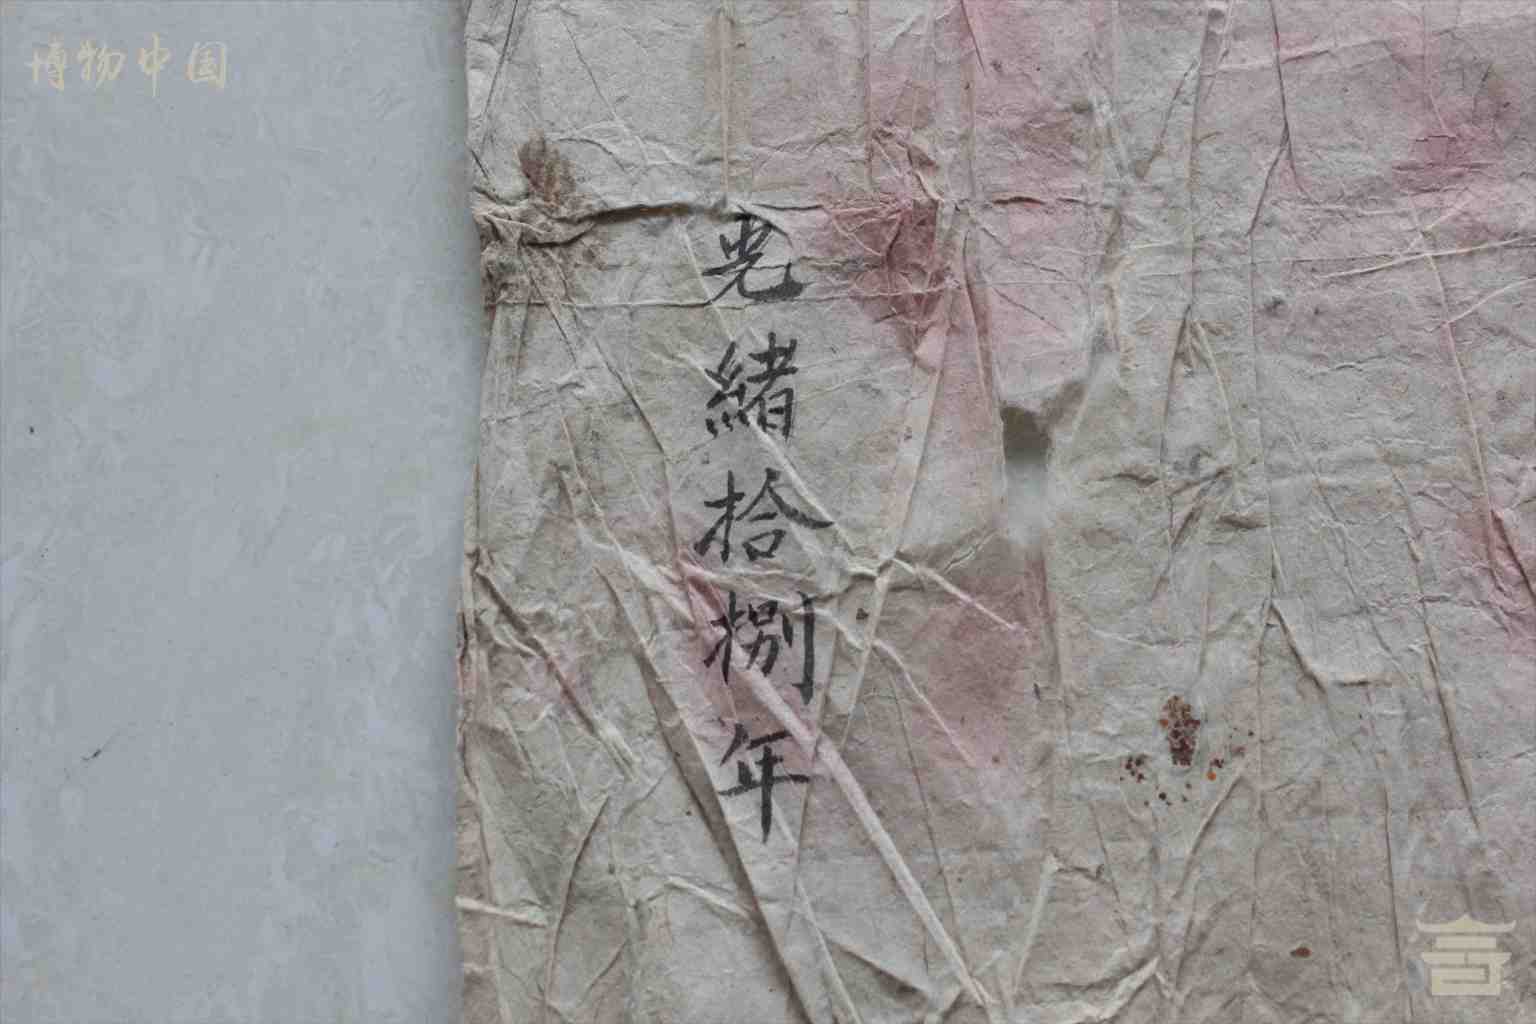 博物中国
光緒拾捌年